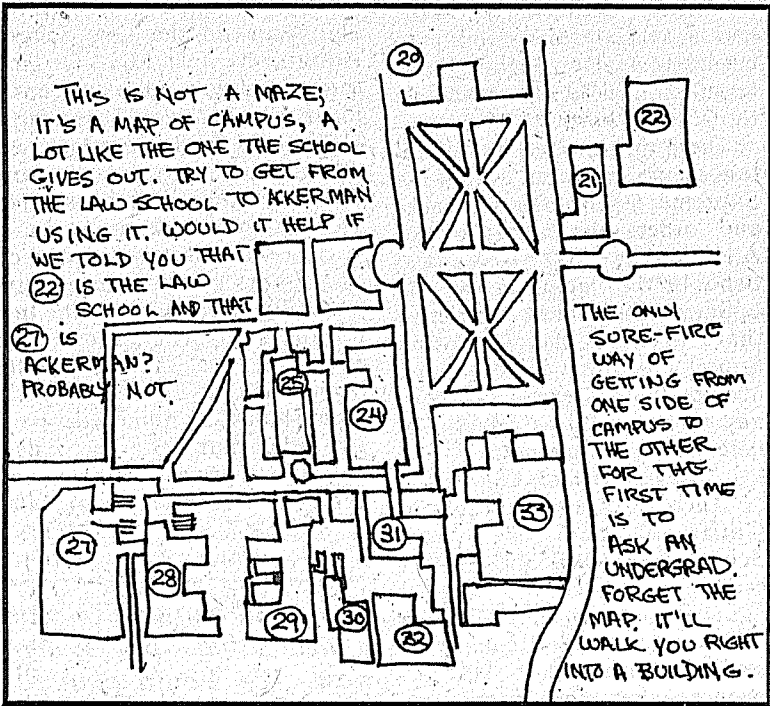 THIS IS NOT A MAZE;
IT'S A MAP OF CAMPUS, A
LOT LIKE THE ONE THE SCHOOL
GIVES OUT. TRY TO GET FROM
THE LAW SCHOOL TO ACKERMAN
USING IT. WOULD IT HELP IF
WE TOLD YOU THAT
22 IS THE LAW
SCHOOL AND THAT
27 is
ACKERMAN?
PROBABLY NOT.
20
22
21
25
24
27
28
29
30
31
32
33
THE ONLY
SURE-FIRE
WAY OF
GETTING FROM
ONE SIDE OF
CAMPUS TO
THE OTHER
FOR THE
FIRST TIME
IS TO
ASK AN
UNDERGRAD.
FORGET THE
MAP. IT'LL
WALK YOU RIGHT
INTO A BUILDING.